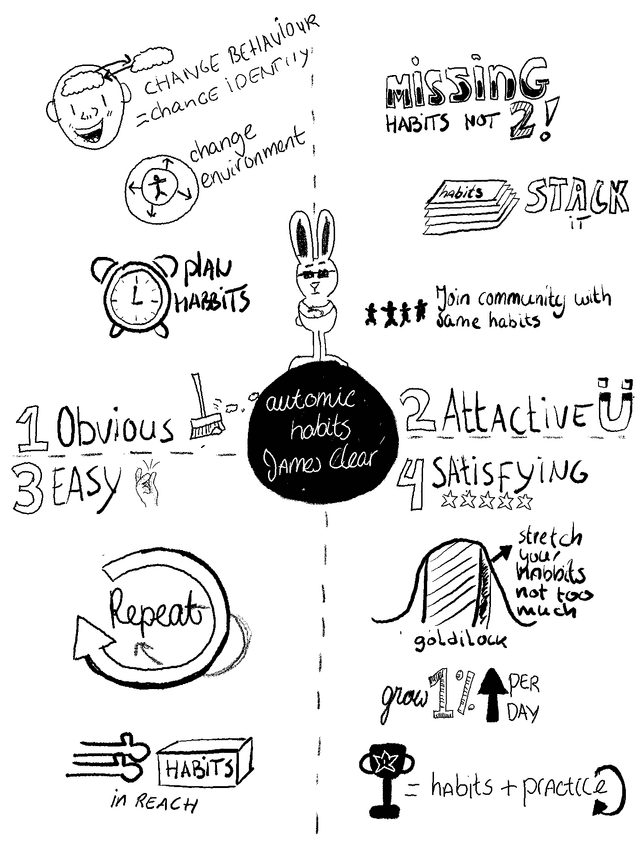 CHANGE BEHAVIOUR
=change iDENTITY
change
environment
PLAN
HABBITS
MISSING
HABITS NOT 2!
habits
STACK
iT
Join community with
same habits
automic
habits
James Clear
1 Obvious
2 AttACtiVE
3 EASY
4 SAtiSFYiNG
Repeat
stretch
your
HABBits
not too
much
goldilock
grow 1% PER
DAY
HABiTS
in REACH
1
= habits + practice